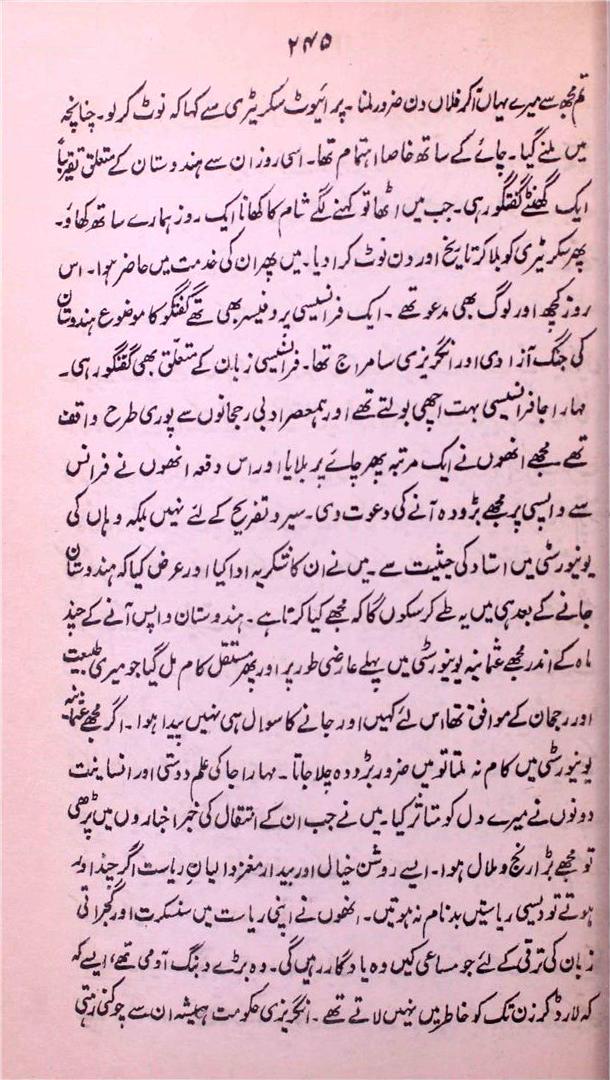 ۲۴۵
تم مجھ سے میرے یہاں آکر فلاں دن ضرور ملنا۔ پرائیوٹ سکریٹری سے کہا کہ نوٹ کر لو۔ چنانچہ
میں ملنے گیا۔ چائے کے ساتھ خاصا اہتمام تھا۔ اسی روز ان سے ہندوستان کے متعلق تقریباً
ایک گھنٹے گفتگو رہی۔ جب میں اٹھا تو کہنے لگے شام کا کھانا ایک روز ہمارے ساتھ کھاؤ۔
پھر سکریٹری کو بلا کر تاریخ اور دن نوٹ کرا دیا۔ میں پھر ان کی خدمت میں حاضر ہوا۔ اس
روز کچھ اور لوگ بھی مدعو تھے۔ ایک فرانسیسی پروفیسر بھی تھے گفتگو کا موضوع ہندوستان
کی جنگ آزادی اور انگریزی سامراج تھا۔ فرانسیسی زبان کے متعلق بھی گفتگو رہی۔
مہاراجا فرانسیسی بہت اچھی بولتے تھے اور ہمعصر ادبی رجحانوں سے پوری طرح واقف
تھے۔ مجھے انھوں نے ایک مرتبہ پھر چائے پر بلایا اور اس دفعہ انھوں نے فرانس
سے واپسی پر مجھے بڑودہ آنے کی دعوت دی۔ سیر و تفریح کے لئے نہیں بلکہ وہاں کی
یونیورسٹی میں استاد کی حیثیت سے۔ میں نے ان کا شکریہ ادا کیا اور عرض کیا کہ ہندوستان
جانے کے بعد ہی میں یہ طے کر سکوں گا کہ مجھے کیا کرنا ہے۔ ہندوستان واپس آنے کے چند
ماہ کے اندر مجھے عثمانیہ یونیورسٹی میں پہلے عارضی طور پر اور پھر مستقل کام مل گیا جو میری طبیعت
اور رجحان کے موافق تھا اس لئے کہیں اور جانے کا سوال ہی نہیں پیدا ہوا۔ اگر مجھے عثمانیہ
یونیورسٹی میں کام نہ ملتا تو میں ضرور بڑودہ چلا جاتا۔ مہاراجا کی علم دوستی اور انسانیت
دونوں نے میرے دل کو متاثر کیا۔ میں نے جب ان کے انتقال کی خبر اخباروں میں پڑھی
تو مجھے بڑا رنج و ملال ہوا۔ ایسے روشن خیال اور بیدار مغز والیانِ ریاست اگر چند اور
ہوتے تو دیسی ریاستیں بدنام نہ ہوتیں۔ انھوں نے اپنی ریاست میں سنسکرت اور گجراتی
زبان کی ترقی کے لئے جو مساعی کیں وہ یادگار رہیں گی۔ وہ بڑے دبنگ آدمی تھے، ایسے کہ
کہ لارڈ کرزن تک کو خاطر میں نہیں لاتے تھے۔ انگریزی حکومت ہمیشہ ان سے چوکنی رہتی